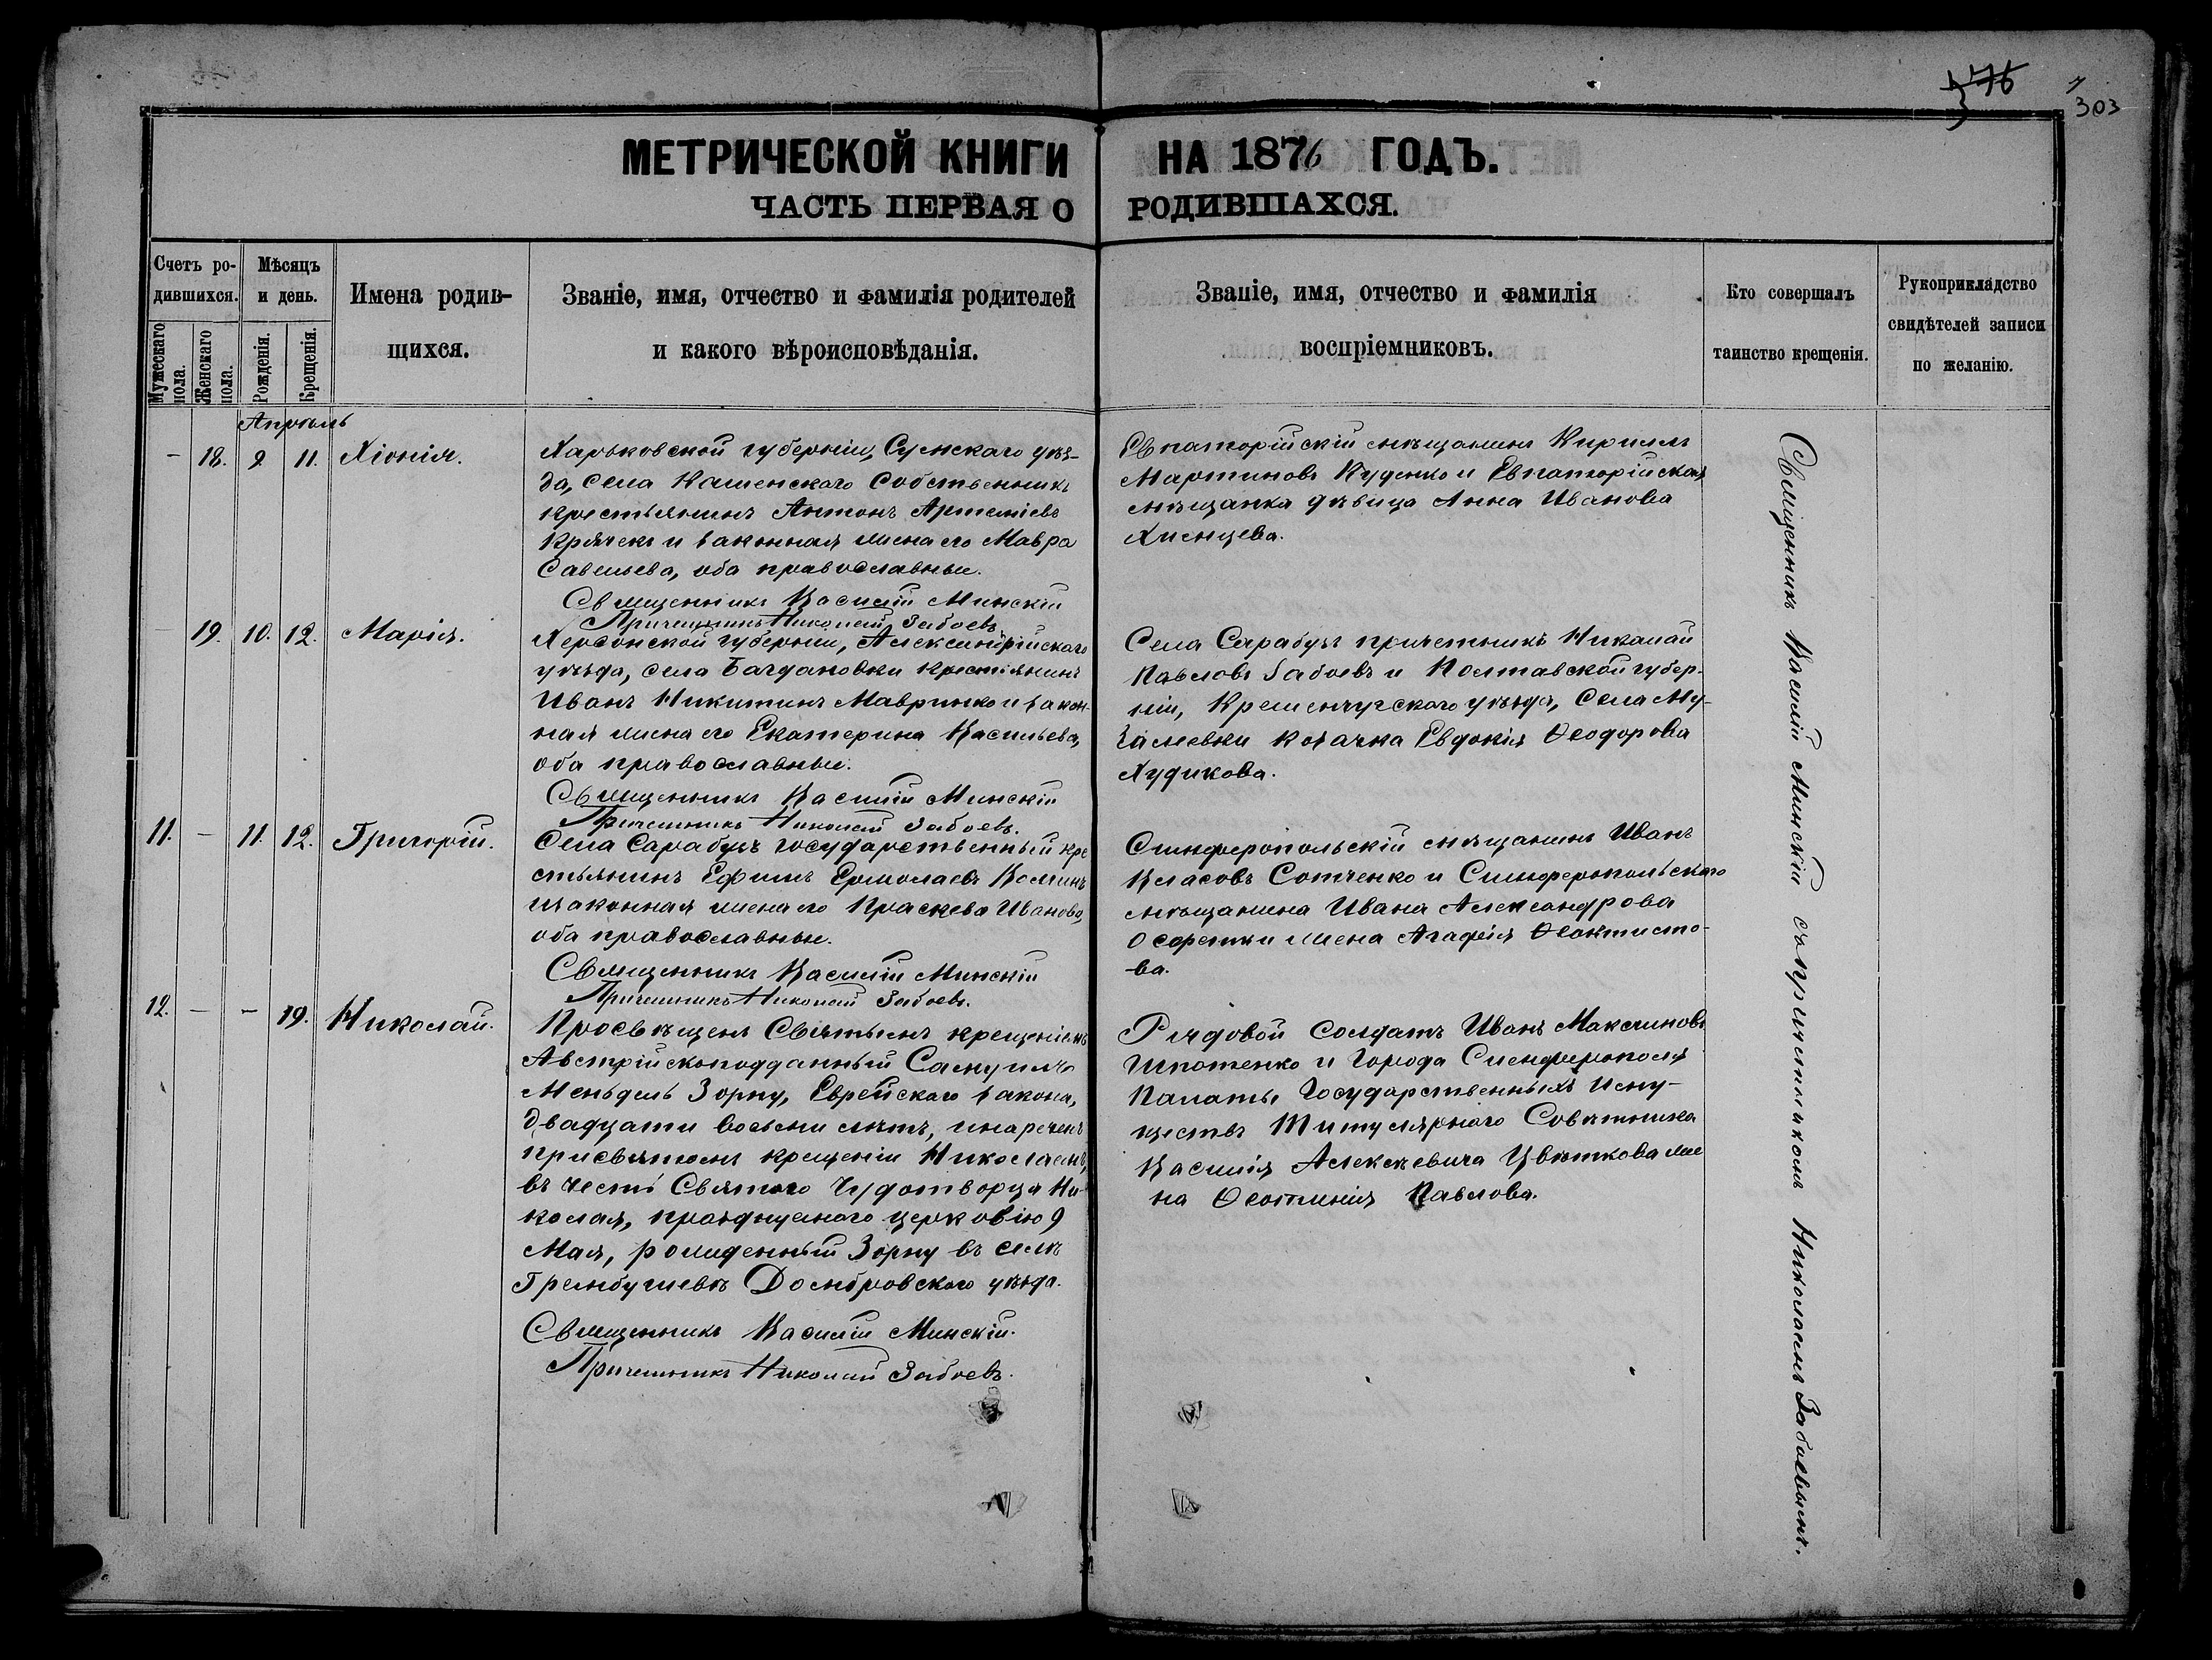 376
303
МЕТРИЧЕСКОЙ КНИГИ НА 1876 ГОДЪ.
ЧАСТЬ ПЕРВАЯ О РОДИВШАХСЯ.
Счетъ родившихся.
Мужескаго пола.
Женскаго пола.
Мѣсяцъ и день.
Рожденія.
Крещенія.
Имена родив-
щихся.
Званіе, имя, отчество и фамилія родителей
и какого вѣроисповѣданія.
Званіе, имя, отчество и фамилія
воспріемниковъ.
Кто совершалъ
таинство крещенія.
Рукоприкладство
свидѣтелей записи
по желанію.
Апрѣль
- 18. 9. 11. Хіонія.
Харьковской губерніи, Сумскаго уѣз-
да, села собственникъ
крестьянинъ Антонъ Артеміевъ
и законная жена его Мавра
Савельева, оба православные.
Священникъ Василій Минскій
Причетникъ Николай Забоевъ
Евпаторійскій мѣщанинъ Кирилъ
Мартиновъ Куценко и Евпаторійская
мѣщанка дѣвица Анна Иванова
19. 10. 12. Марія.
Херсонской губерніи, Александрійскаго
уѣзда, села Багдановки крестьянинъ
Иванъ Никитинъ Мавринко и закон-
ная жена его Екатерина Васильева,
оба православные.
Священникъ Василій Минскій
Причетникъ Николай Забоевъ.
Села Сарабузъ причетникъ Николай
Павловъ Забоевъ и Полтавской губер-
ніи, Кременчугскаго уѣзда, села
козачка Евдокія Ѳеодорова
Худикова.
11. - 11. 12. Григорій.
Села Сарабузъ государственный кре
стьянинъ Ефимъ Ермолаевъ
и законная жена его Праскева Иванова,
оба православные.
Священникъ Василій Минскій
Причетникъ Николай Забоевъ.
Симферопольскій мѣщанинъ Иванъ
Власовъ Сотченко и Симферопольскаго
мѣщанина Ивана Александрова
жена Агафія Ѳеоктисто-
ва.
12. - - 19. Николай.
Просвѣщенъ Святымъ крещеніемъ
Австрійскоподданный Самуилъ
Мендель Зорну, Еврейскаго закона,
двадцати восьми лѣтъ, и нареченъ
при святомъ крещеніи Николаемъ,
въ честь Святаго Чудотворца Ни-
колая, празднуемаго церковію 9
Мая, рожденный Зорну въ селѣ
Домбровскаго уѣзда.
Священникъ Василій Минскій.
Причетникъ Николай Забоевъ.
Рядовой солдатъ Иванъ Максимовъ
Ипотенко и города Симферополя
Палаты Государственныхъ Иму-
ществъ Титулярнаго Совѣтника
Василія Алексѣевича Цвѣткова же
на Павлова.
Священникъ Василій Минскій съ причетникомъ Николаемъ Забоевымъ.